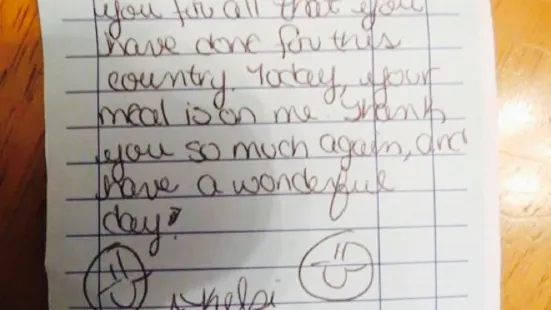 you for all that you
have done for this
country. Today, your
meal is on me. Thank
you so much again, and
have a wonderful
day!